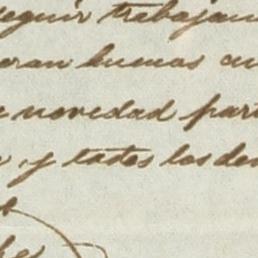 seguir trabajan
eran buenas cu
novedad part
y todos los des